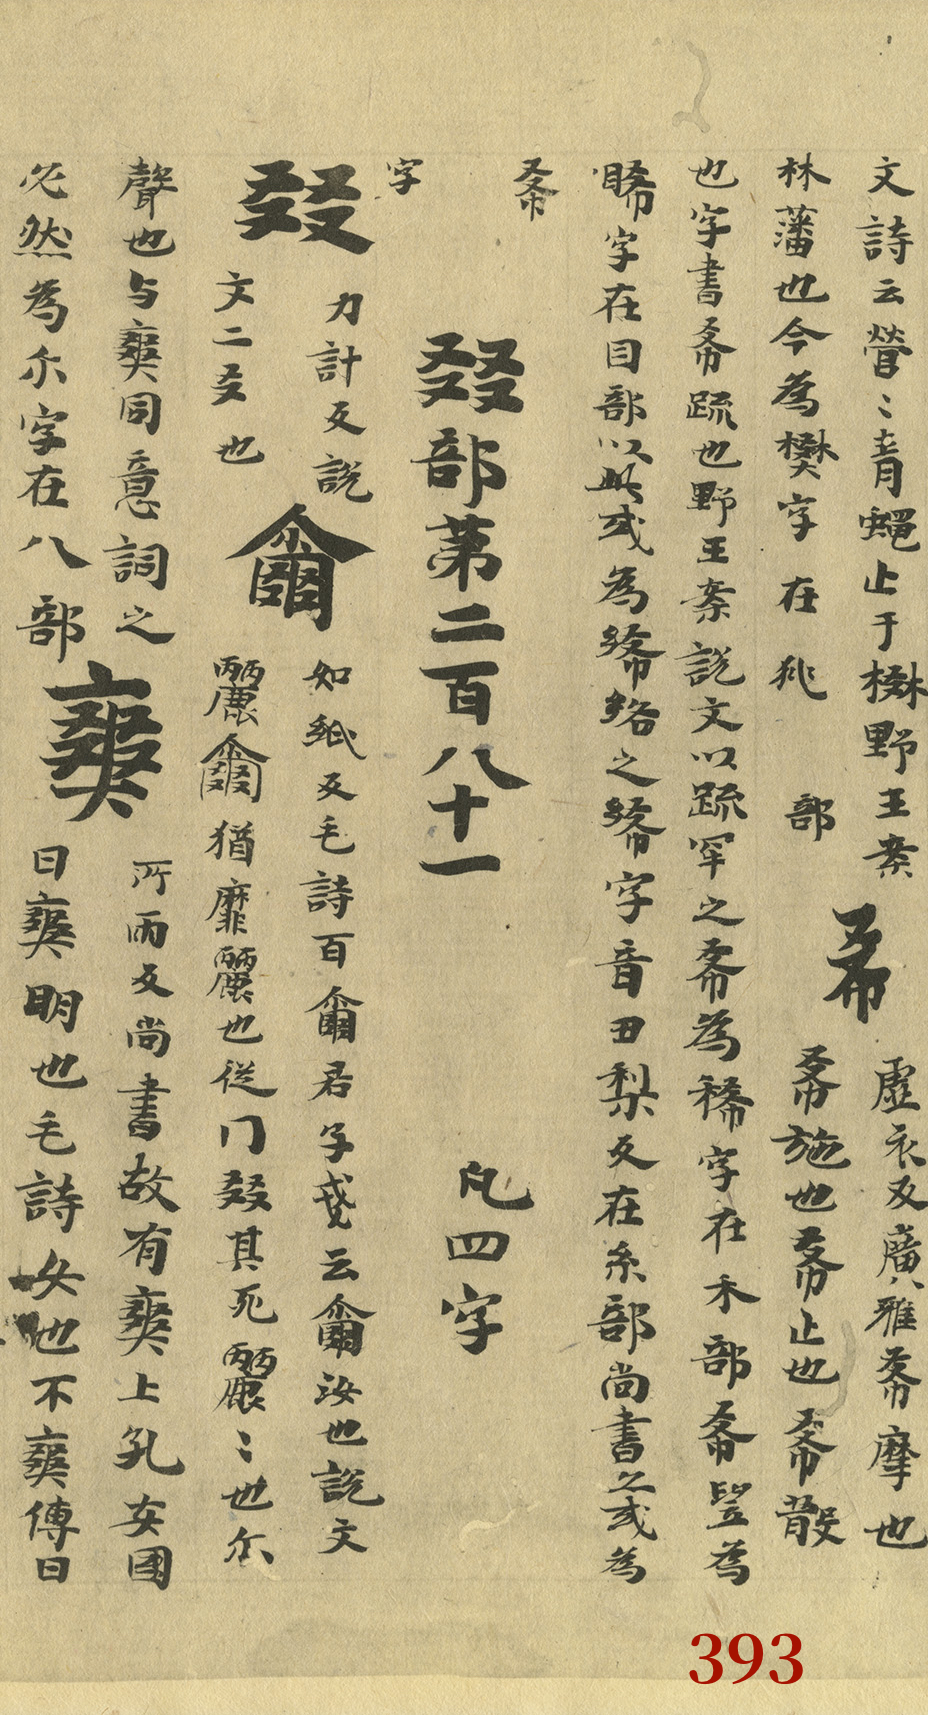 文詩云營〻青蠅止于樊野王案
林藩也今為樊字在𠬜部
希
虛衣反廣雅希摩也
希施也希止也希散
也字書希疏也野王案說文以疏罕之希為稀字在禾部希豎為
睎字在目部以此或為絺綌之絺字音丑梨反在糸部尚書之或為
希
字
㸚部第二百八十一 凡四字
㸚
力計反說
文二爻也
爾
如紙反毛詩百爾君子戔云爾汝也說文
麗爾猶靡麗也從冂㸚其死麗〻也尒
聲也与爽同意詞之
必然為尒字在八部
爽
所兩反尚書故有爽上孔安國
曰爽明也毛詩女也不爽傳曰
393